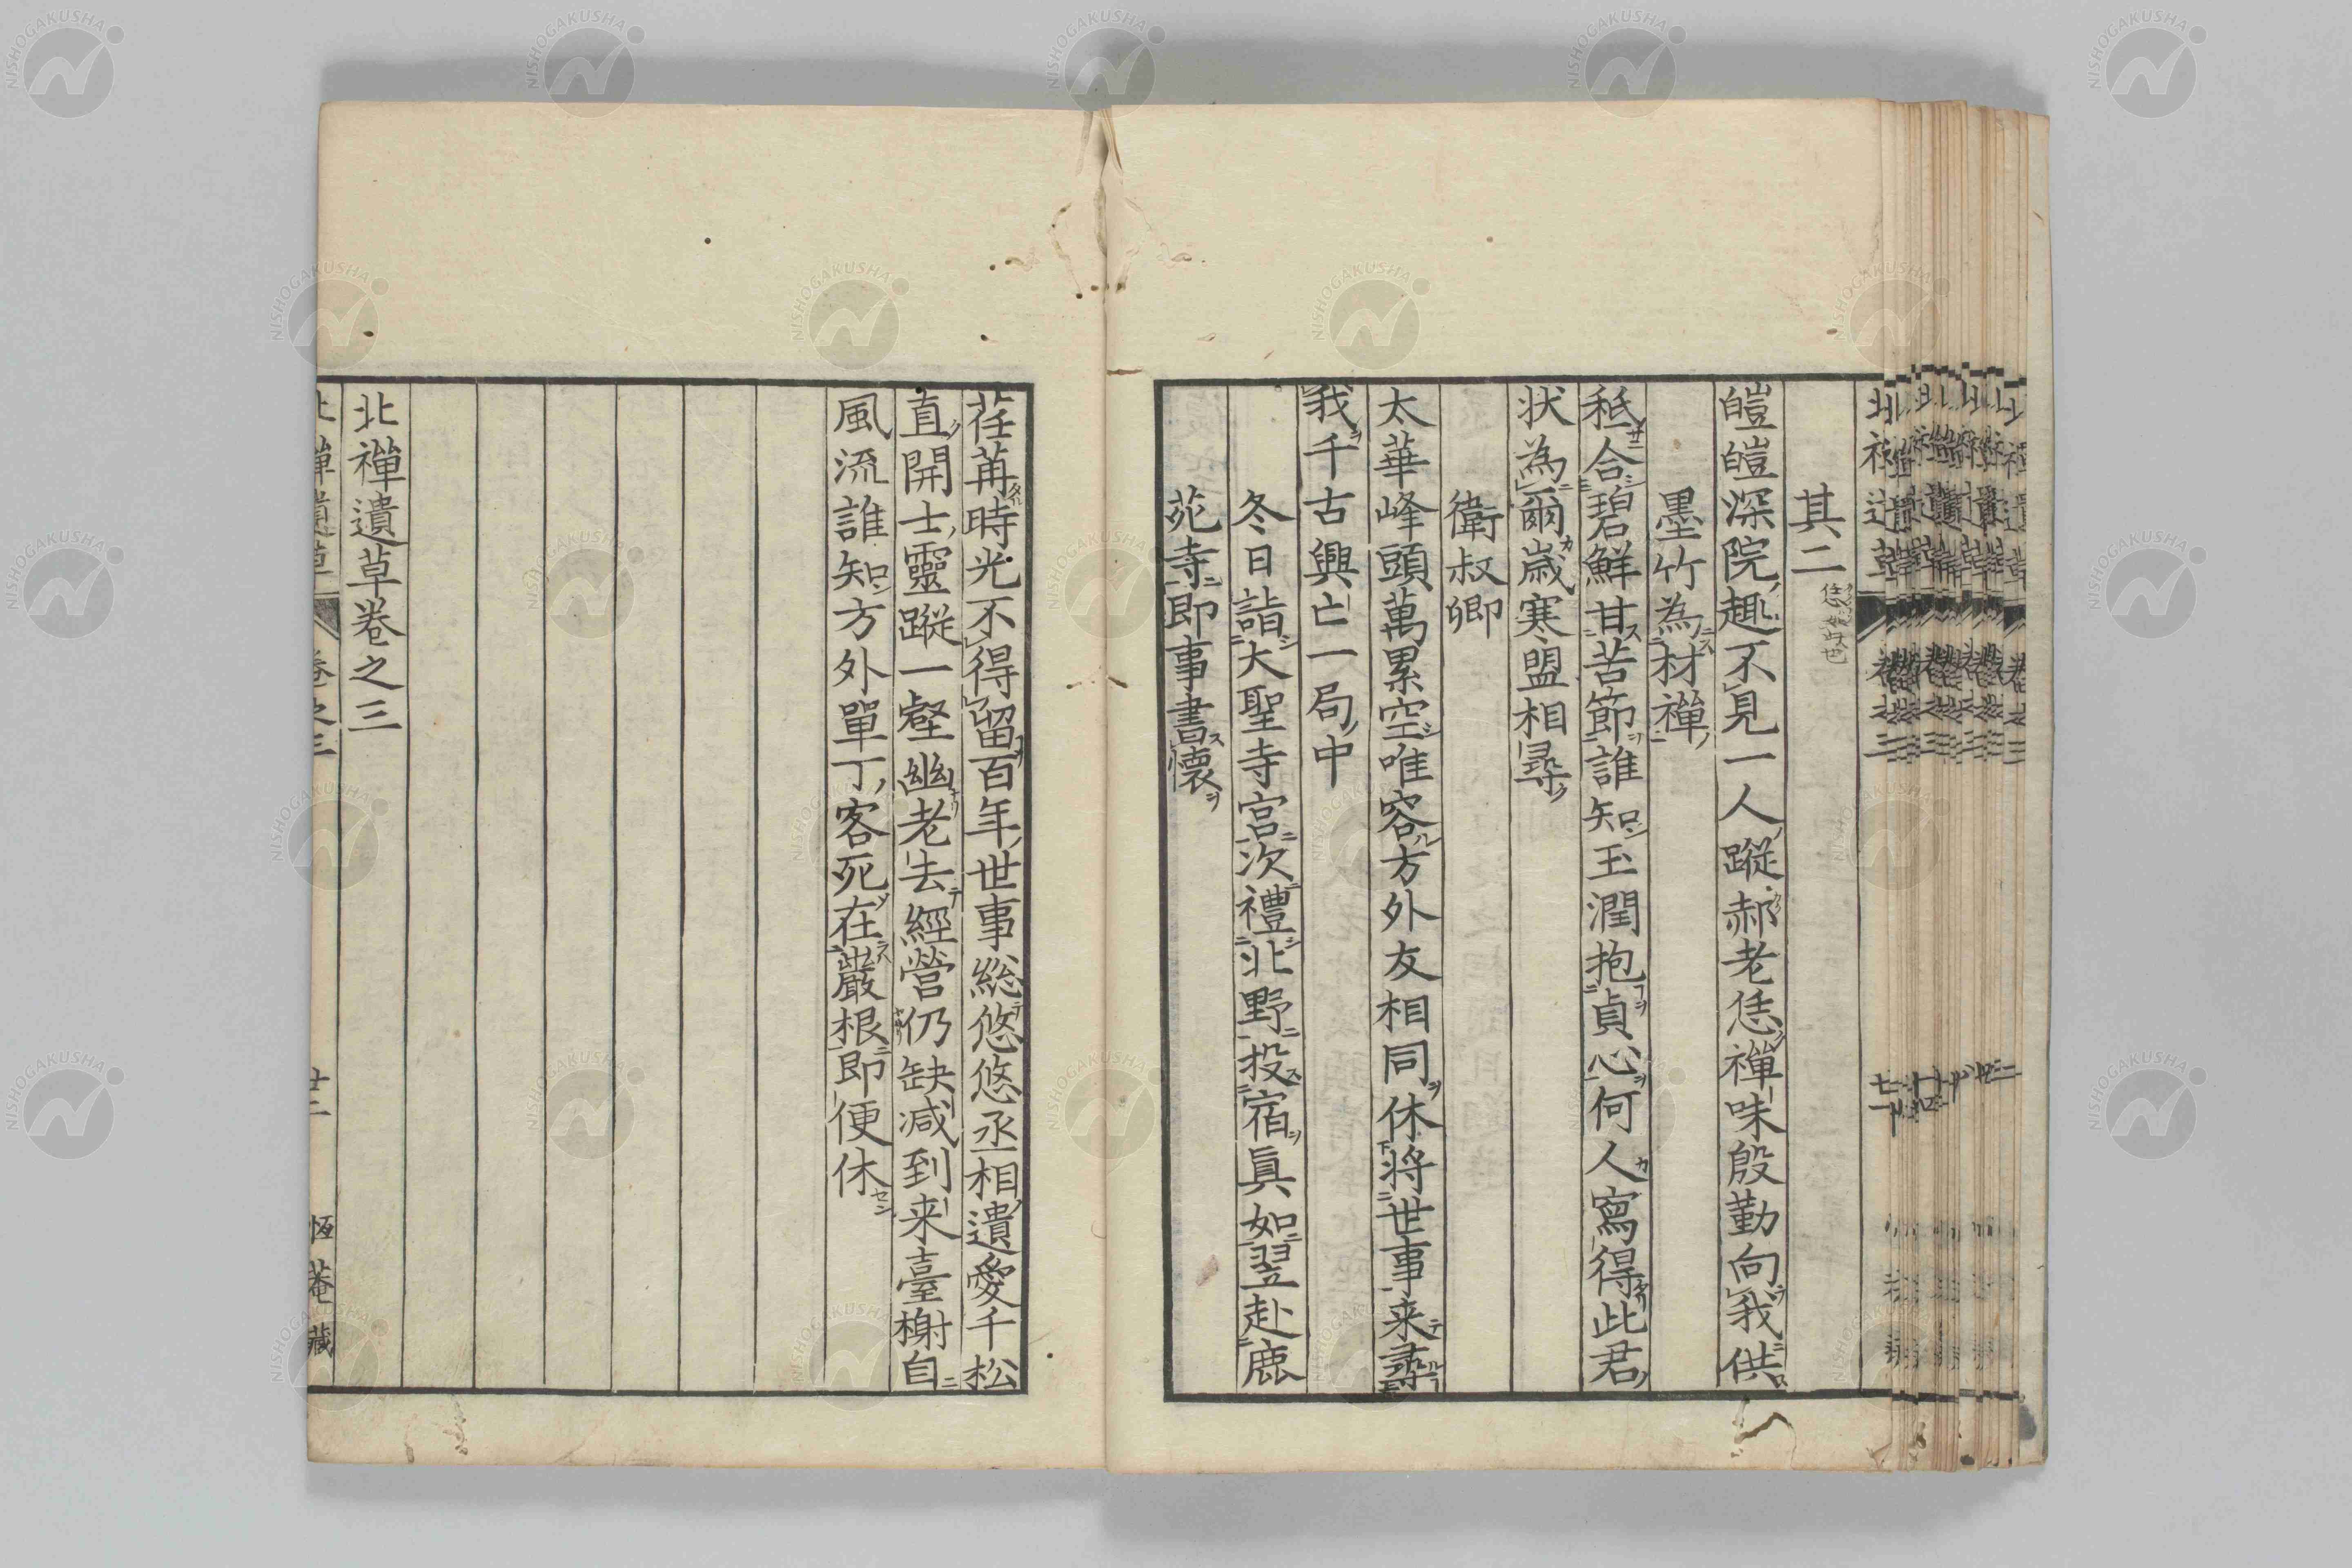 其二
皚皚深院趣不見一人蹤郝老恁禪味殷勤向我供
墨竹為材禪
秪合碧鮮甘苦節誰知玉潤抱貞心何人寫得此君
状為爾歳寒盟相尋
衛叔卿
太華峰頭萬累空唯容方外友相同休将世事来尋
我千古興亡一局中
冬日詣大聖寺宮次禮北野投宿眞如翌赴鹿
苑寺即事書懐
荏苒時光不得留百年世事総悠悠丞相遺愛千松
直開士靈蹤一壑幽老去經營仍缺減到来臺榭自
風流誰知方外單丁客死在巖根即便休
北禪遺草巻之三
北禪遺草 巻之三 廿二 恆菴藏
NISHOGAKUSHA